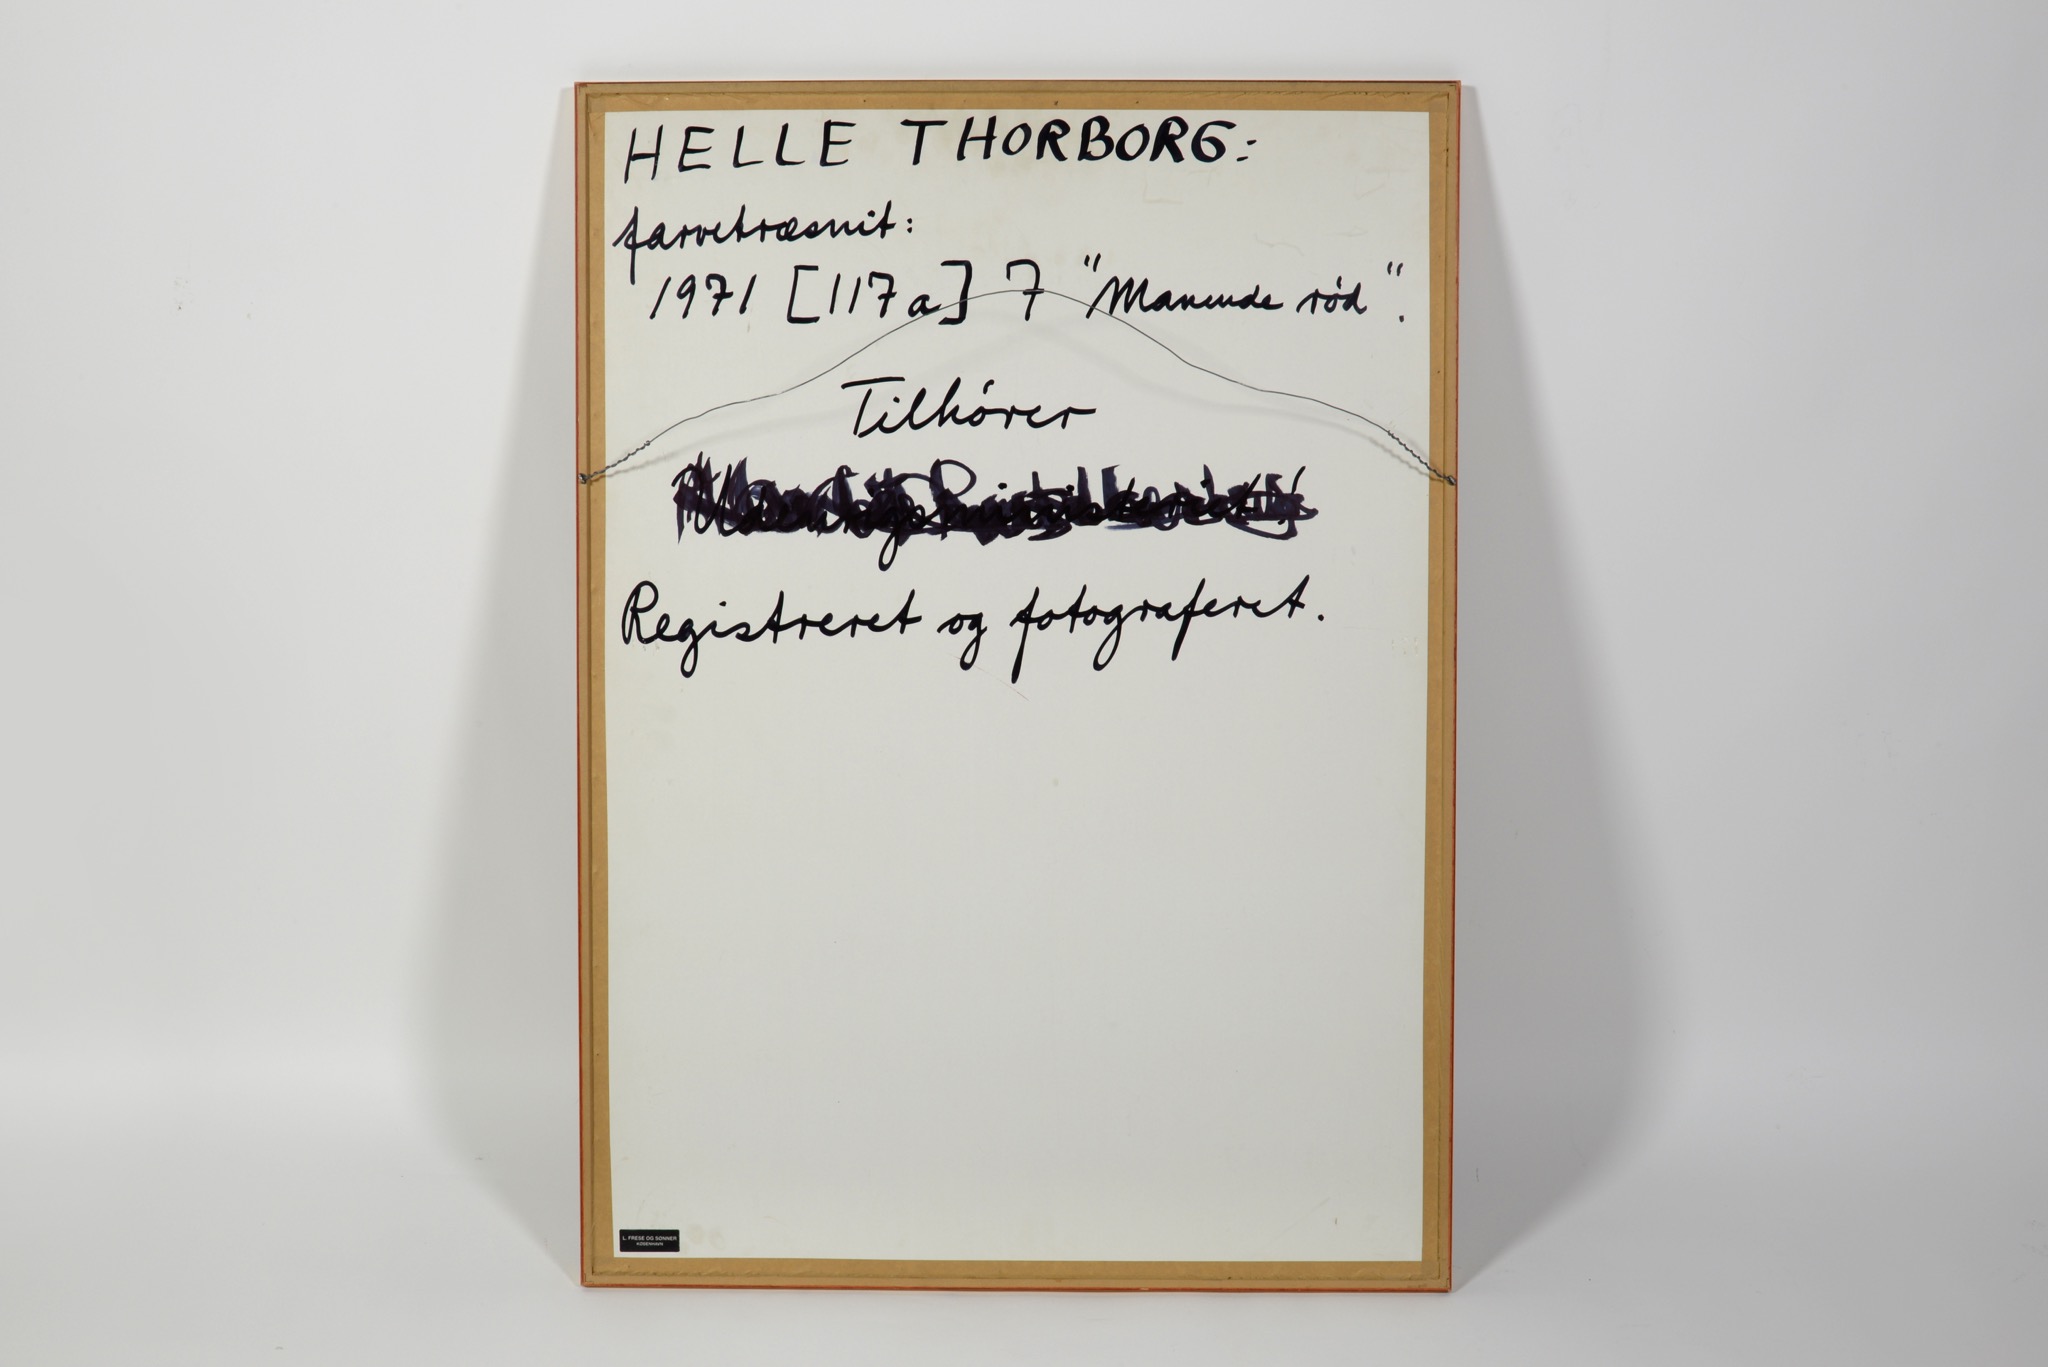 HELLE THORBORG:
farvetræsnit:
1971 [117a] 7 "Manende rød".
Tilhører
Registreret og fotograferet.
L. FRESE OG SØNNER
KØBENHAVN